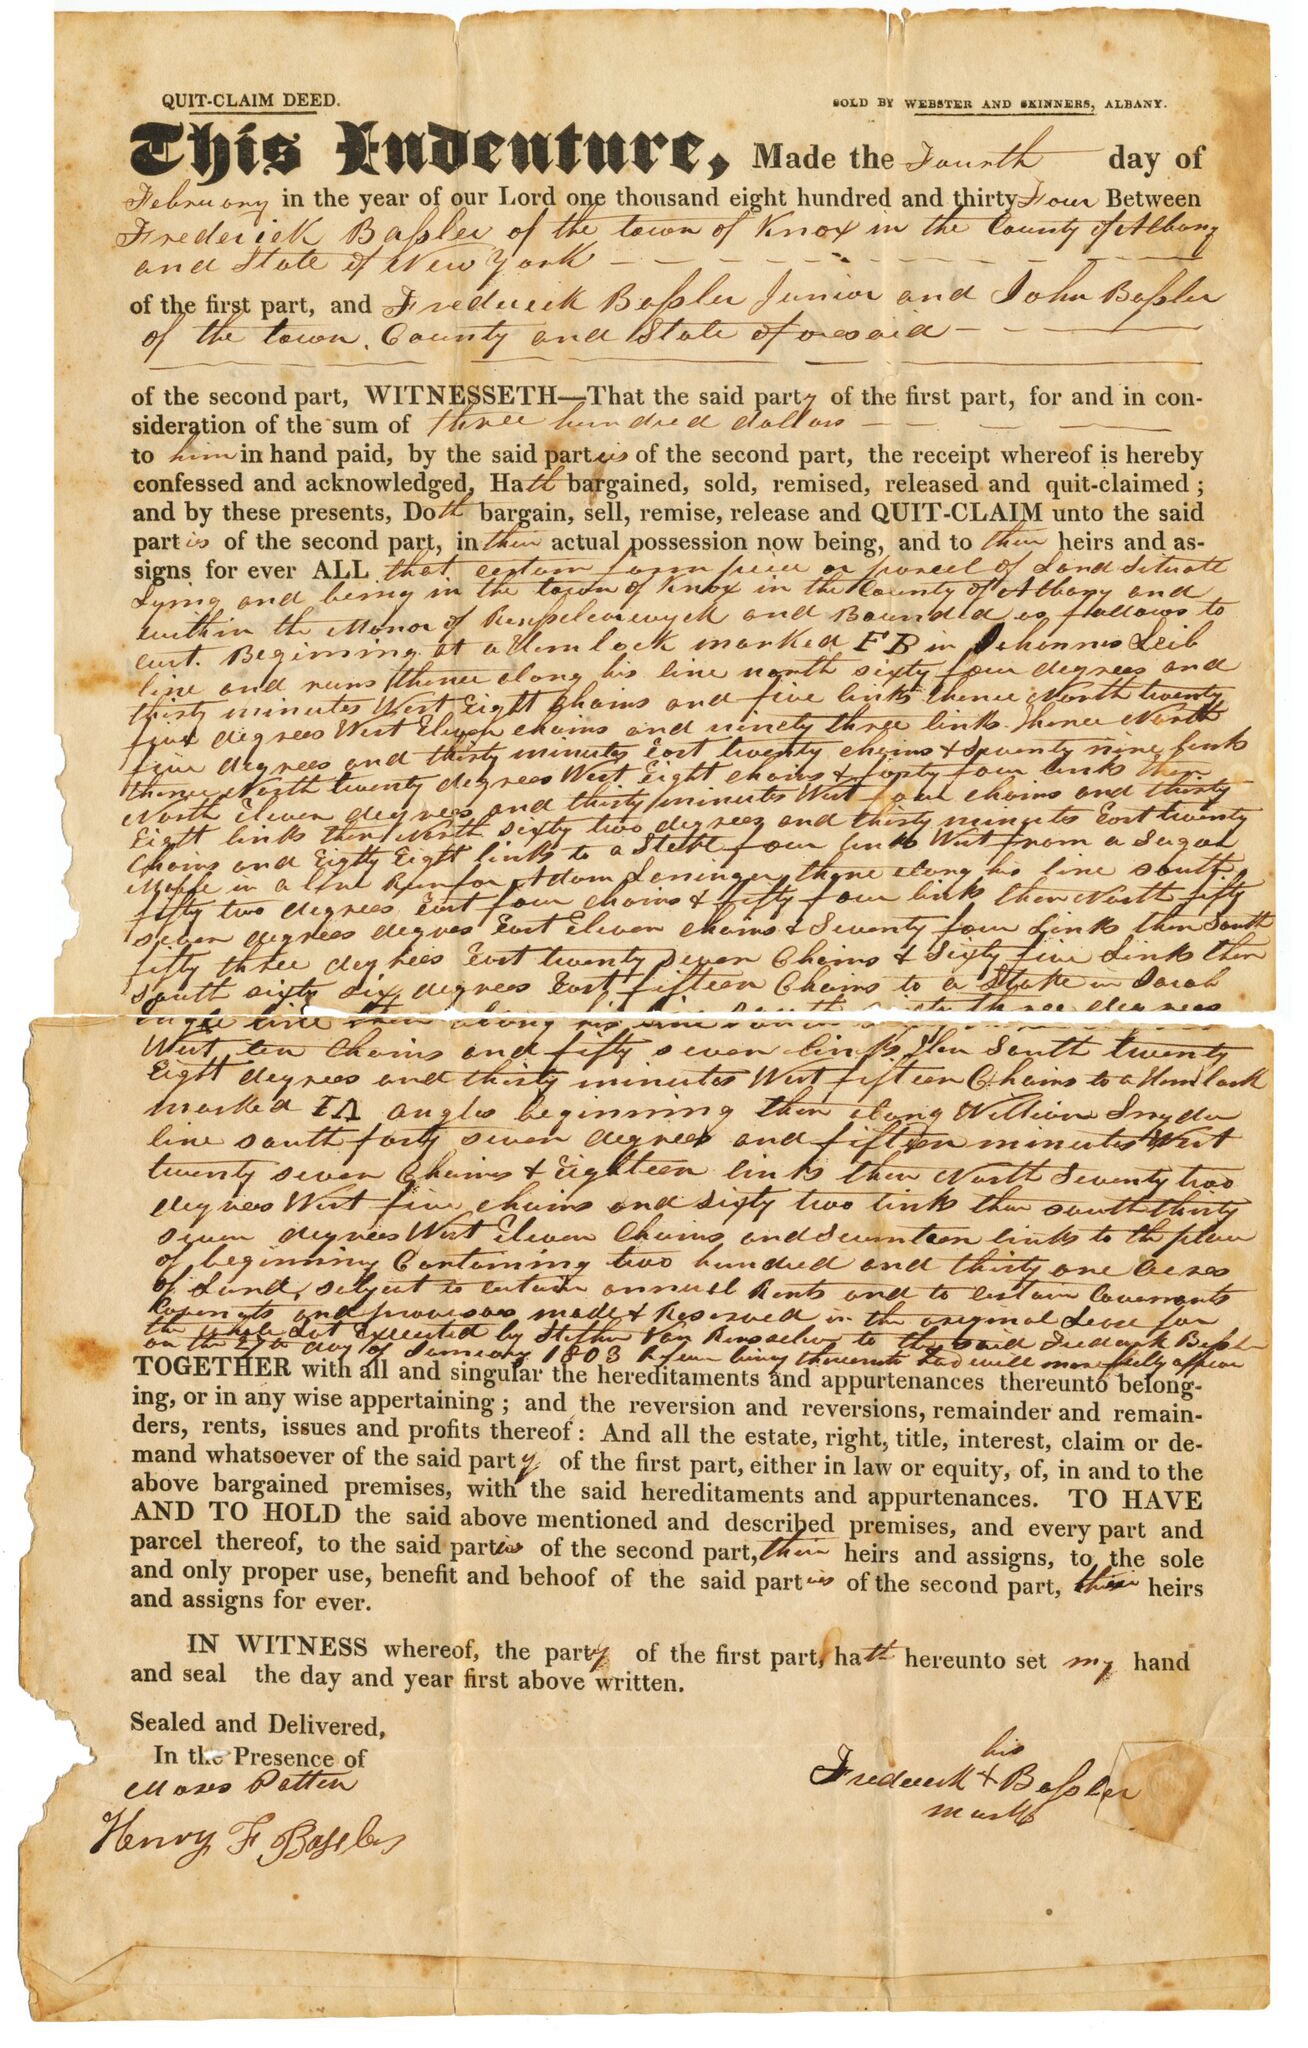 QUIT-CLAIM DEED.
SOLD BY WEBSTER AND SKINNERS, ALBANY.
This Indenture, Made the Fourth day of
February in the year of our Lord one thousand eight hundred and thirty Four Between
Frederick Baſsler of the town of Knox in the County of Albany
and State of New York
of the first part, and Frederick Baſsler Junior and John Baſsler
of the town, County and State aforesaid
of the second part, WITNESSETH—That the said party of the first part, for and in con-
sideration of the sum of three hundred dollars
to him in hand paid, by the said parties of the second part, the receipt whereof is hereby
confessed and acknowledged, Hath bargained, sold, remised, released and quit-claimed;
and by these presents, Doth bargain, sell, remise, release and QUIT-CLAIM unto the said
parties of the second part, in their actual possession now being, and to their heirs and as-
signs for ever ALL that certain farm piece or parcel of Land Situate
Lying and being in the town of Knox in the County of Albany and
within the Manor of and Bounded as follows to
Beginning at a Hemlock marked F B in Johannes Leib
line and runs thence along his line north sixty four degrees and
thirty minutes West Eight Chains and five links thence North twenty
degrees West Eleven chains and ninety three links thence North
five degrees and thirty minutes East twenty chains & Seventy nine links
thence North twenty degrees West Eight chains & forty four links then
North Eleven degrees and thirty minutes West four chains and thirty
Eight links then North sixty two degrees and thirty minutes East twenty
Chains and Eighty Eight links to a Stake four links West from a Sugar
Maple in a line Run for Adam thence along his line south
fifty two degrees East four chains & fifty four links then North fifty
seven degrees degrees East Eleven Chains & Seventy four Links then South
fifty three degrees East twenty seven Chains & Sixty five Links then
south sixty six degrees East fifteen Chains to a Stake in Jacob
line then along his line three degrees
West ten Chains and fifty seven links then South twenty
Eight degrees and thirty minutes West fifteen Chains to a Hemlock
marked angles beginning then along William Snyder
line south forty seven degrees and fifteen minutes West
twenty seven Chains & Eighteen links then North Seventy two
degrees West five chains and sixty two links then south thirty
seven degrees West Eleven Chains and Seventeen links to the place
of beginning Containing two hundred and thirty one acres
of Land, subject to certain annual Rents and to certain Covenants
and made & Reserved in the original Lease for
the whole Lot Executed by Stephen Van Rensselaer to the said Frederick Baſsler
on the day of January 1803 being thereunto had will more fully appear
TOGETHER with all and singular the hereditaments and appurtenances thereunto belong-
ing, or in any wise appertaining; and the reversion and reversions, remainder and remain-
ders, rents, issues and profits thereof: And all the estate, right, title, interest, claim or de-
mand whatsoever of the said party of the first part, either in law or equity, of, in and to the
above bargained premises, with the said hereditaments and appurtenances. TO HAVE
AND TO HOLD the said above mentioned and described premises, and every part and
parcel thereof, to the said parties of the second part, their heirs and assigns, to the sole
and only proper use, benefit and behoof of the said parties of the second part, their heirs
and assigns for ever.
IN WITNESS whereof, the party of the first part, hath hereunto set my hand
and seal the day and year first above written.
Sealed and Delivered,
In the Presence of
Moses Patten
Henry F Baſsler
his
Frederick + Baſsler
mark